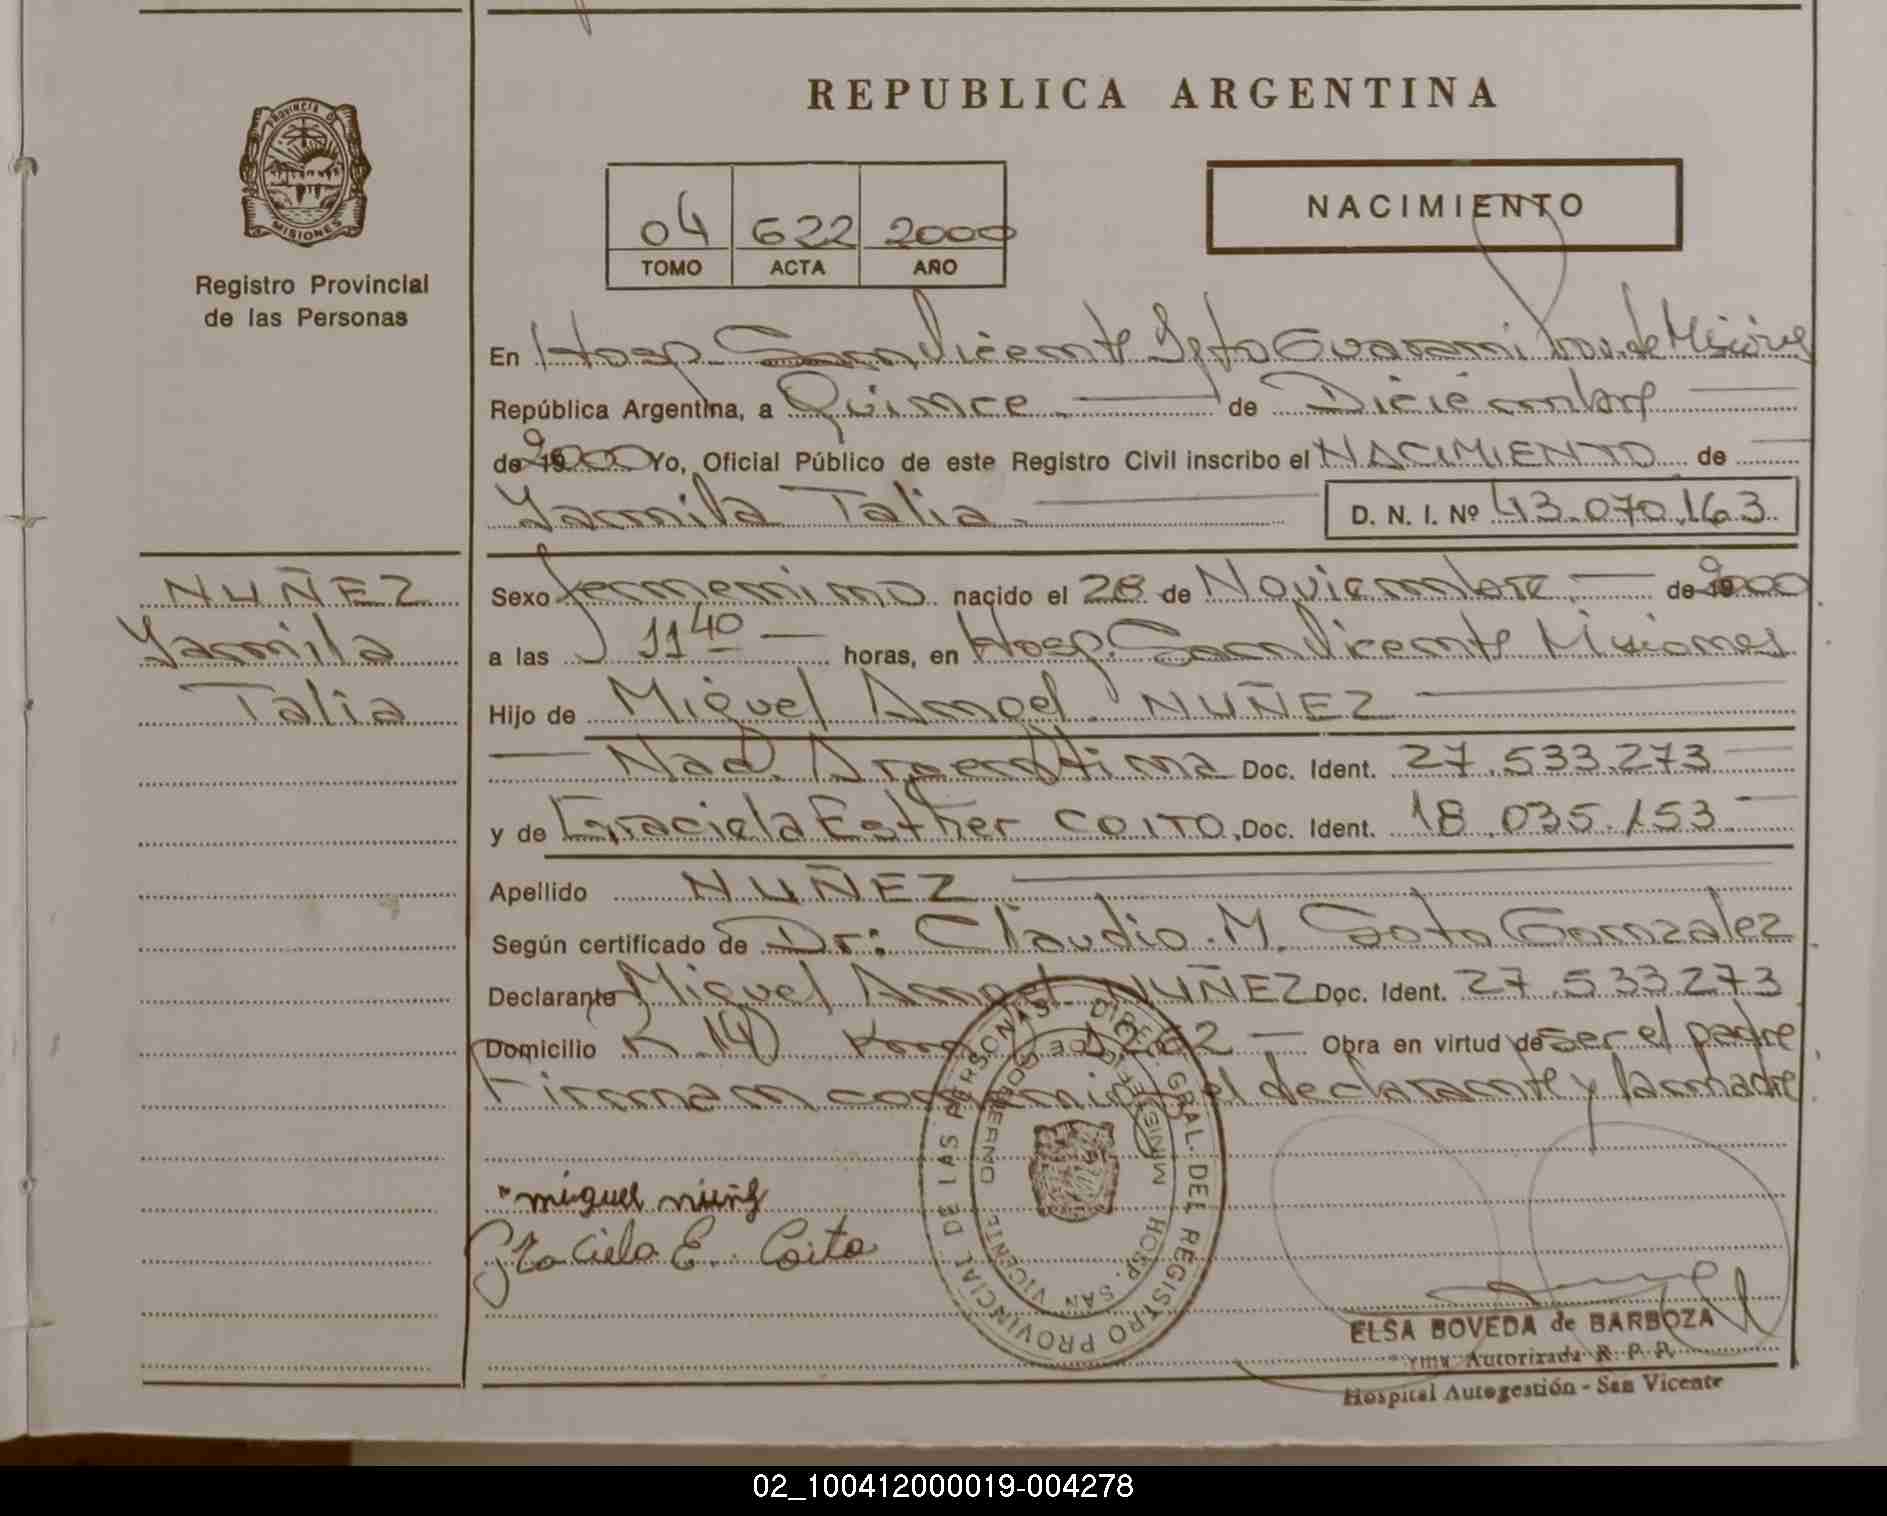 REPUBLICA ARGENTINA
PROVINCIA DE
MISIONES
Registro Provincial
de las Personas
04 622 2000
TOMO ACTA AÑO
NACIMIENTO
En Hosp. San Vicente Dpto Guarani Prov. de Misiones
República Argentina, a Quince de Diciembre
de 2000 Yo, Oficial Público de este Registro Civil inscribo el NACIMIENTO de
Yamila Talia D. N. I. Nº 43.070.163
NUÑEZ
Yamila
Talia
Sexo femenino nacido el 28 de Noviembre de 2000
a las 11 40 horas, en Hosp. San Vicente Misiones
Hijo de Miguel Angel NUÑEZ
Nac. Argentina Doc. Ident. 27.533.273
y de Graciela Esther COITO, Doc. Ident. 18.035.153
Apellido NUÑEZ
Según certificado de Dr: Claudio M. Soto Gonzalez
Declarante Miguel Angel NUÑEZ Doc. Ident. 27.533.273
Domicilio Obra en virtud de ser el padre
Firman conmigo el declarante y la madre
miguel nuñez
Graciela E. Coito
DIREC. GRAL. DEL REGISTRO PROVINCIAL DE LAS PERSONAS
MINISTERIO DE GOBIERNO
HOSP. SAN VICENTE
ELSA BOVEDA de BARBOZA
Autorizada R. P. P.
Hospital Autogestión - San Vicente
02_100412000019-004278